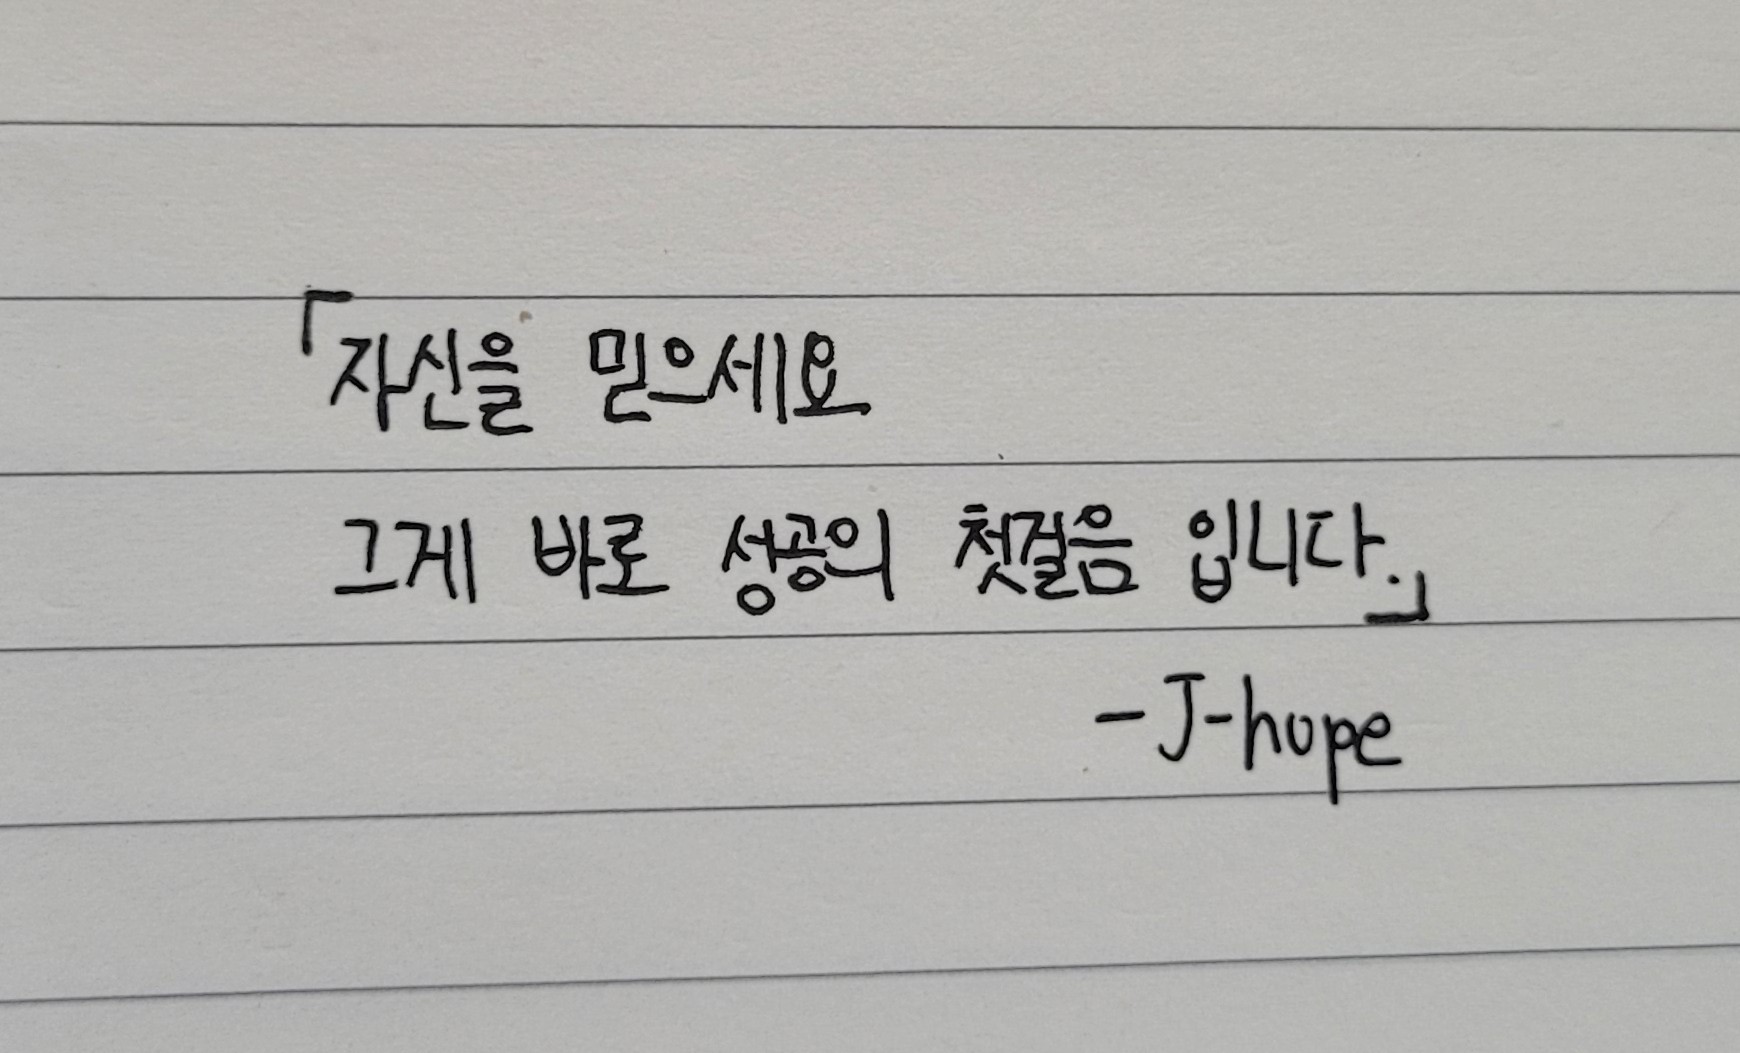 「자신을 믿으세요
그게 바로 성공의 첫걸음 입니다.」
-J-hope